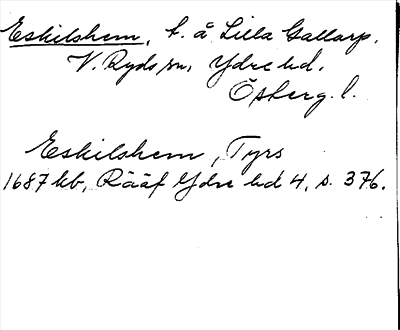 Eskilshem, t. å Lilla Gallarp.
V. Ryds sn, Ydre hd.
Österg. l.
Eskilshem, Tyrs
1687 kb, Rääf Ydre hd 4, s. 376.